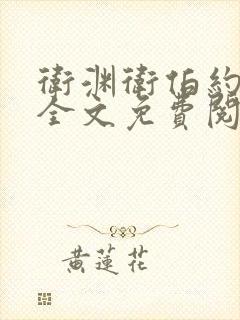 衛渊衛伯約
全文免費閱
黄蓮花